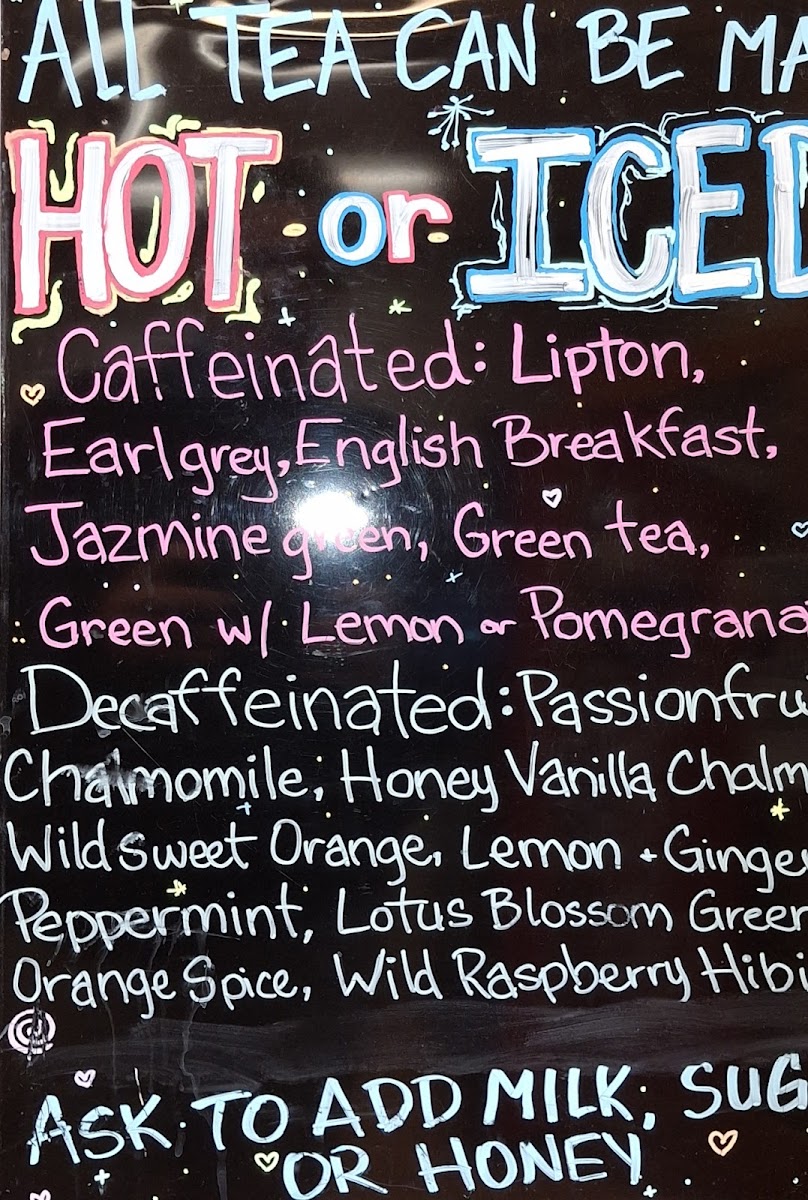 ALL TEA CAN BE MA
HOT or ICED
Caffeinated: Lipton,
Earl grey, English Breakfast,
Jazmine green, Green tea,
Green w/ Lemon or Pomegrana
Decaffeinated: Passionfrui
Chalmomile, Honey Vanilla Chalm
Wild Sweet Orange, Lemon + Ginger
Peppermint, Lotus Blossom Green
Orange Spice, Wild Raspberry Hibi
ASK TO ADD MILK, SUG
OR HONEY